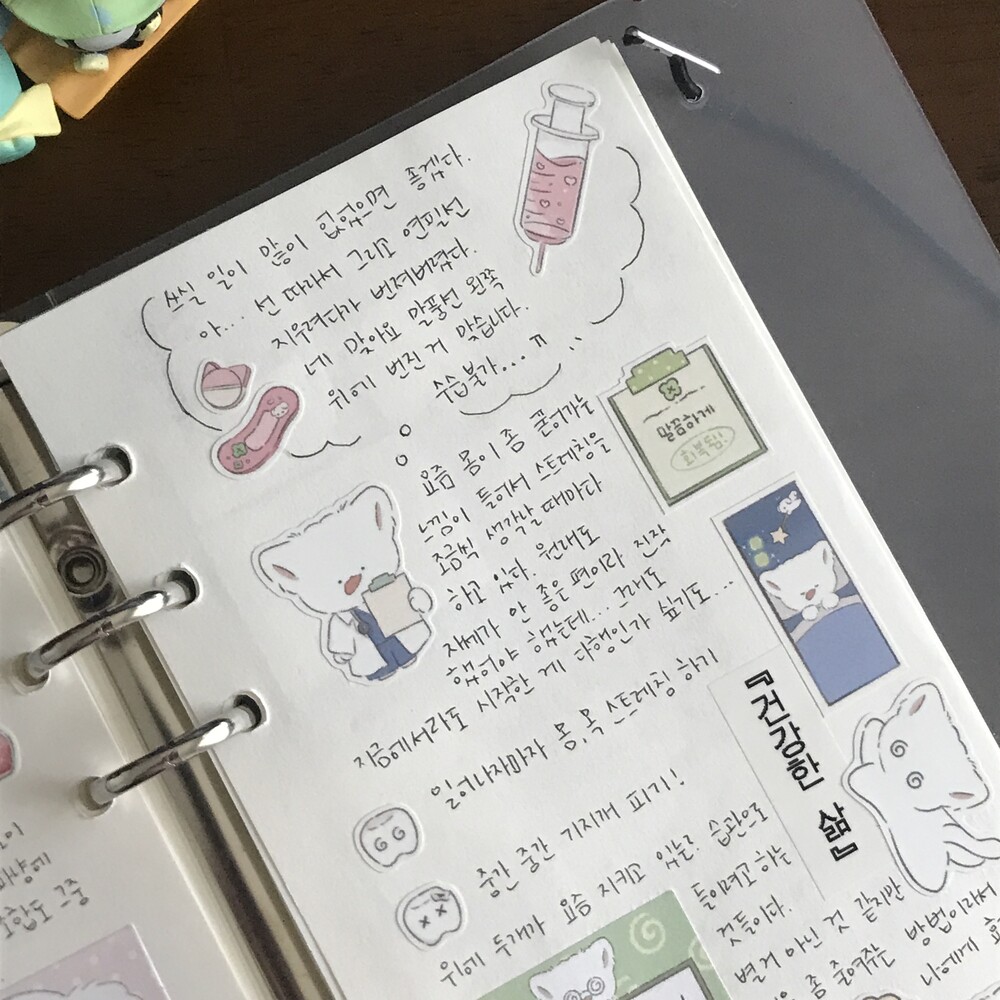 쓰실 일이 많이 없었으면 좋겠다.
아... 선 따라서 그리고 연필선
지우려다가 번져버렸다.
네 맞아요 말풍선 왼쪽
위에 번진 거 맞습니다.
수습불가...ㅠ
말끔하게
회복됨!
요즘 몸이 좀 굳어가는
느낌이 들어서 스트레칭을
조금씩 생각날 때마다
하고 있다. 원래도
자세가 안 좋은 편이라 진작
했어야 했는데... 그래도
지금에서라도 시작한 게 다행인가 싶기도...
일어나자마자 몸,목 스트레칭 하기
중간 중간 기지개 펴기!
『건강한 삶』
위에 두개가 요즘 지키고 있는 습관으로
들이려고 하는
것들이다.
별거 아닌 것 같지만
좀 줄여주는 방법이라서
나에게